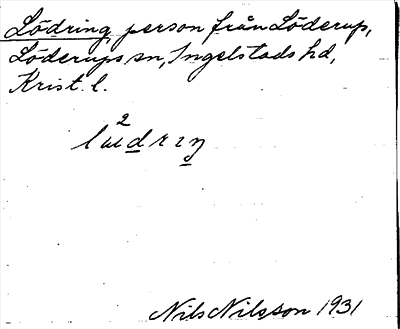 Lödring, person från Löderup,
Löderups sn, Ingelstads hd,
Krist. l.
Nils Nilsson 1931